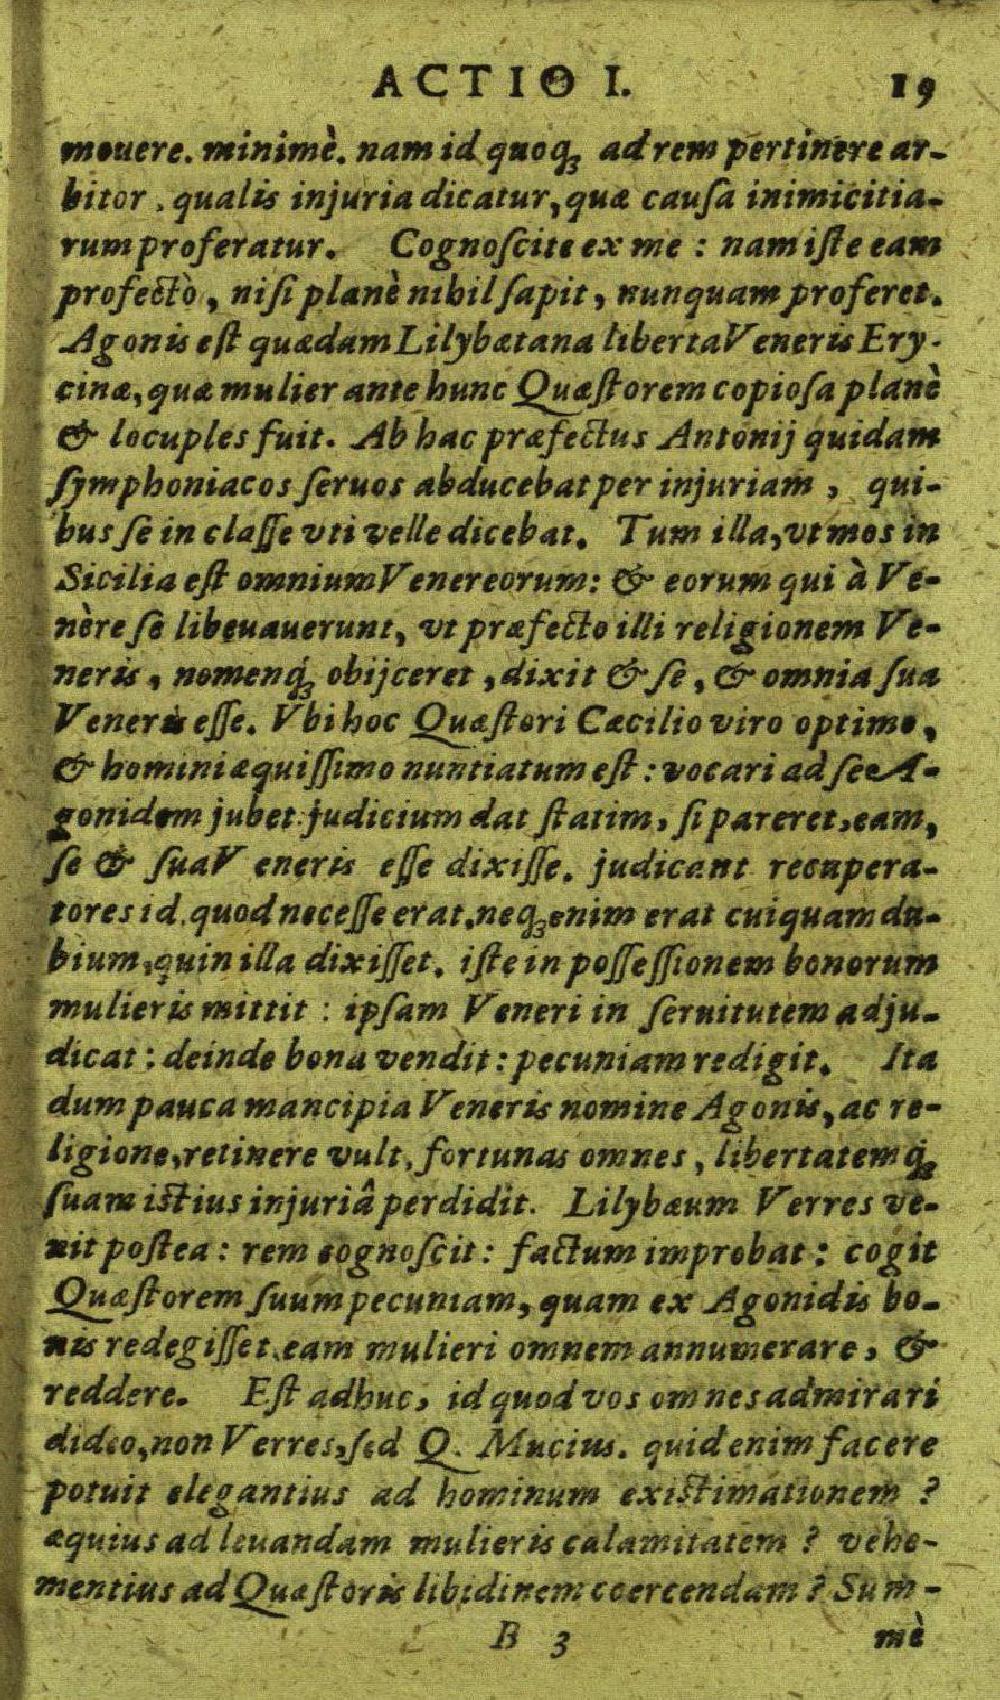 ACTIO I. 19
mouere. minimè. nam id quoqꝫ ad rem pertinere ar-
bitor. qualis injuria dicatur, quæ cauſa inimicitia-
rum proferatur. Cognoſcite ex me : nam iſte eam
profectò, niſi planè nihil ſapit, nunquam proferet.
Agonis eſt quædam Lilybætana liberta Veneris Ery-
cinæ, quæ mulier ante hunc Quæſtorem copioſa planè
& locuples fuit. Ab hac præfectus Antonij quidam
ſymphoniacos ſeruos abducebat per injuriam, qui-
bus ſe in claſſe vti velle dicebat. Tum illa, vt mos in
Sicilia eſt omnium Venereorum: & eorum qui à Ve-
nère ſe libeuauerunt, vt præfecto illi religionem Ve-
neris, nomenq́ꝫ obijceret, dixit & ſe, & omnia ſua
Veneris eſſe. Vbi hoc Quæſtori Cæcilio viro optimo,
& homini æquiſſimo nuntiatum eſt : vocari ad ſe A-
gonidem jubet: judicium dat ſtatim, ſi pareret, eam,
ſe & ſua V eneris eſſe dixiſſe. judicant recupera-
tores id. quod neceſſe erat. neqꝫ enim erat cuiquam du-
bium, quin illa dixiſſet. iſte in poſſeſſionem bonorum
mulieris mittit : ipſam Veneri in ſeruitutem adju-
dicat : deinde bona vendit : pecuniam redigit. Ita
dum pauca mancipia Veneris nomine Agonis, ac re-
ligione, retinere vult, fortunas omnes, libertatemq́ꝫ
ſuam iſtius injuriâ perdidit. Lilybæum Verres ve-
nit poſtea : rem cognoſcit : factum improbat : cogit
Quæſtorem ſuum pecuniam, quam ex Agonidis bo-
nis redegiſſet, eam mulieri omnem annumerare, &
reddere. Eſt adhuc, id quod vos omnes admirari
dideo, non Verres, ſed Q. Mucius. quid enim facere
potuit elegantius ad hominum exiſtimationem ?
æquius ad leuandam mulieris calamitatem ? vehe-
mentius ad Quæſtoris libidinem coercendam ? Sum-
B 3 mè